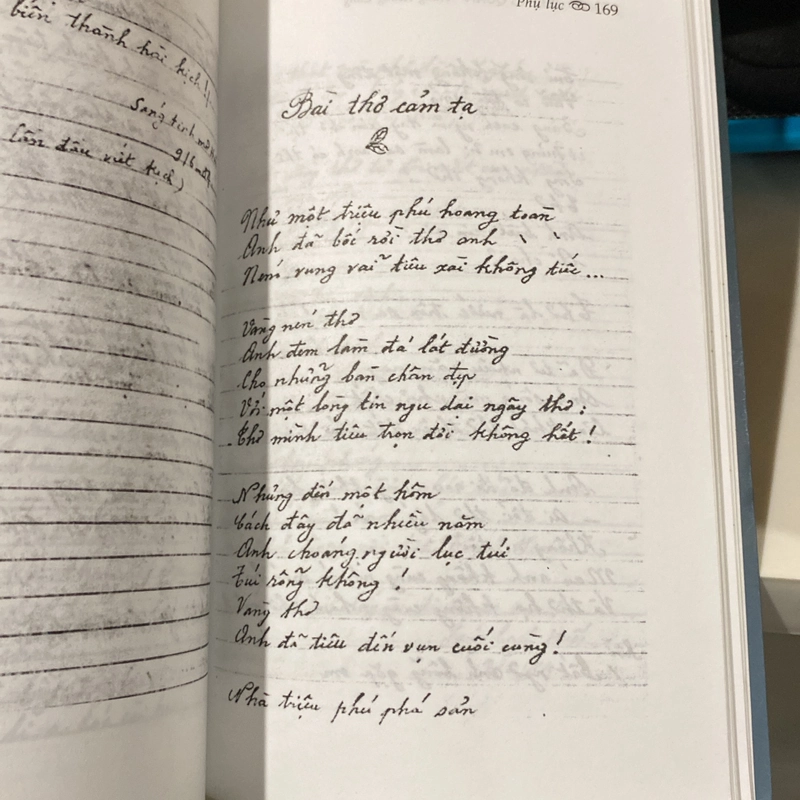 biến thành hài kịch!
Sáng tinh mơ
9/6
lần đầu viết kịch)
Phụ lục 169
Bài thơ cảm tạ
Như một triệu phú hoang toàn
Anh đã bốc rời thơ anh
Ném vung vãi tiêu xài không tiếc...
Vàng nén thơ
Anh đem làm đá lát đường
Cho những bàn chân đẹp
Với một lòng tin ngu dại ngây thơ:
Thơ mình tiêu trọn đời không hết!
Nhưng đến một hôm
Cách đây đã nhiều năm
Anh choáng người lục túi
Túi rỗng không!
Vàng thơ
Anh đã tiêu đến vụn cuối cùng!
Nhà triệu phú phá sản